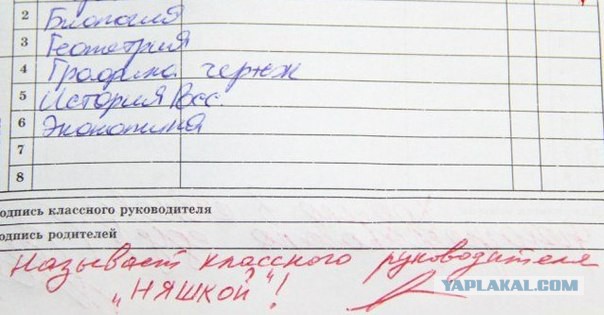 2 Биология
3 Геометрия
4 Графика чертж
5 История Рос.
6 Экономика
7
8
одпись классного руководителя
одпись родителей
Называет классного руководителя
„НЯШКОЙ“!
YAPLAKAL.COM